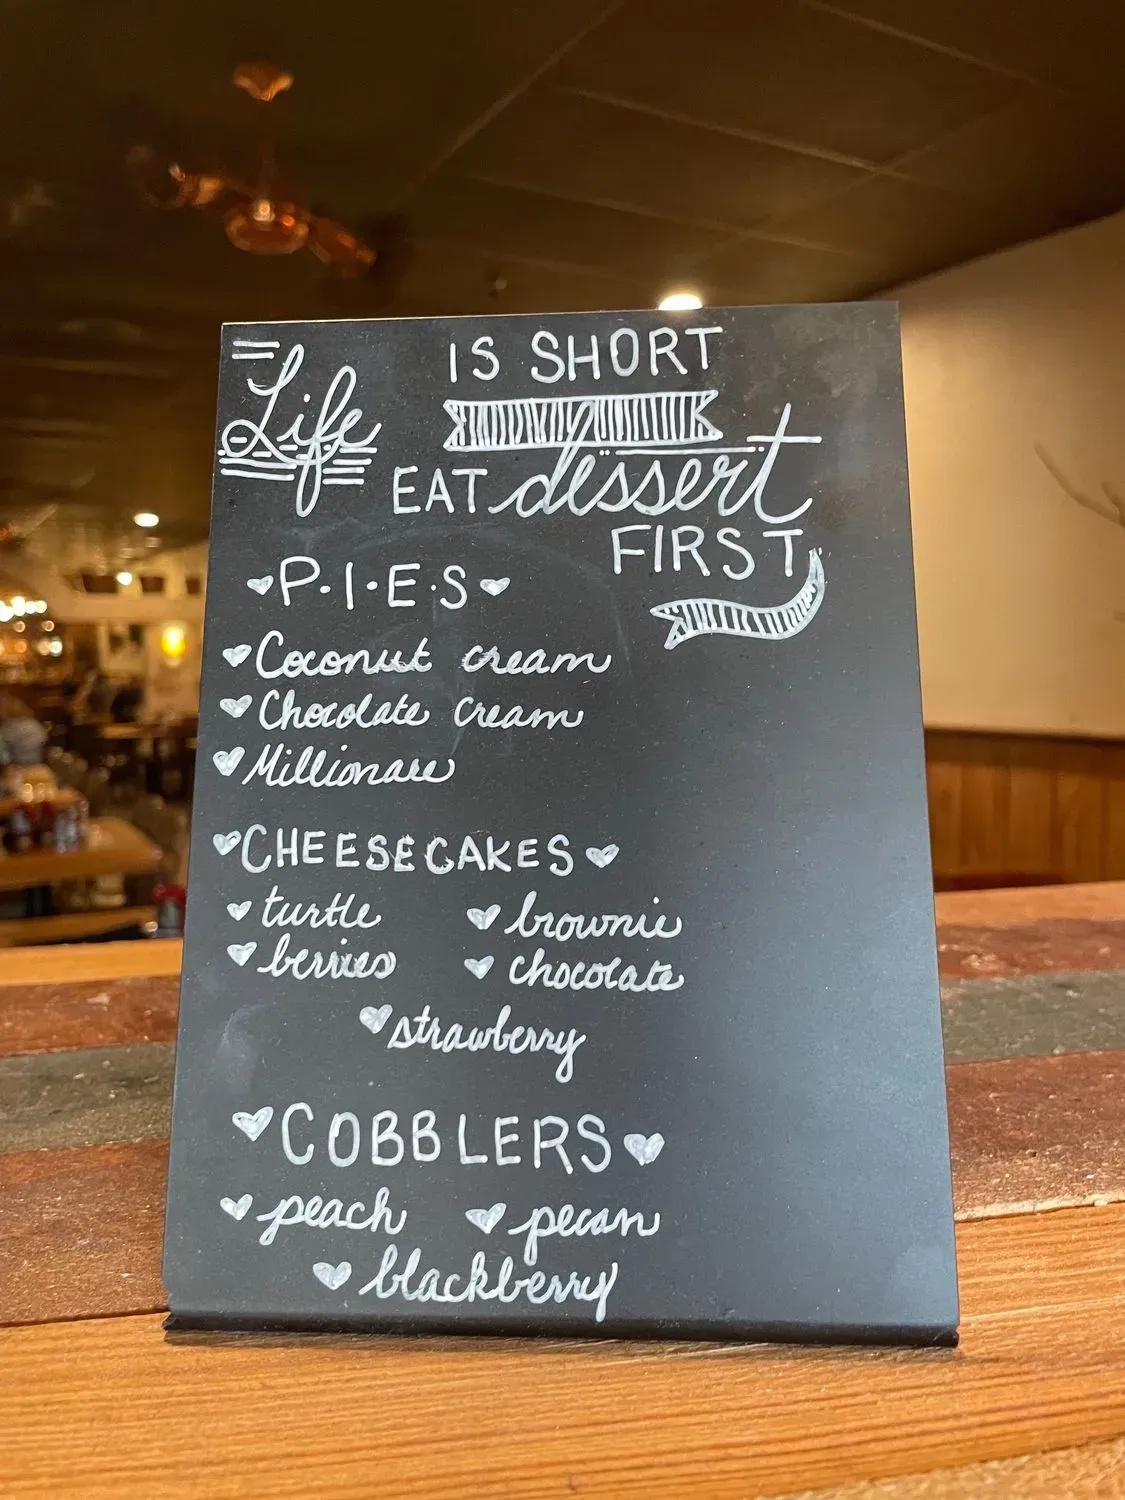 Life IS SHORT
EAT dessert
FIRST
P·I·E·S
Coconut cream
Chocolate cream
Millionare
CHEESECAKES
turtle brownie
berries chocolate
strawberry
COBBLERS
peach pecan
blackberry